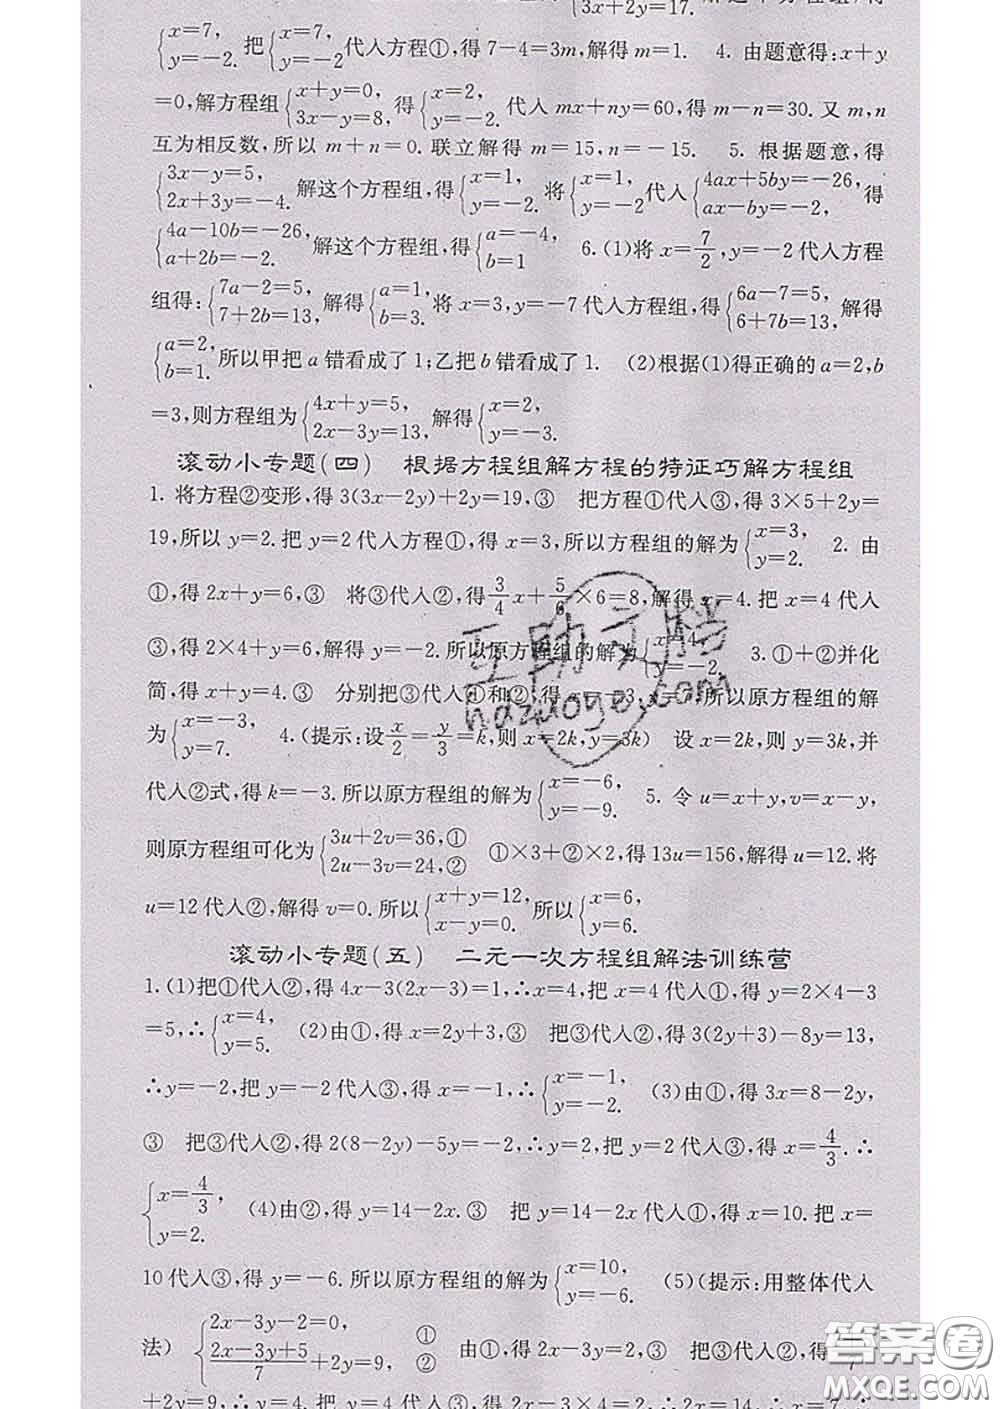 3x+2y=17.
{x=7, y=-2. 把{x=7, y=-2代入方程①,得7-4=3m,解得m=1. 4. 由题意得:x+y
=0,解方程组{x+y=0, 3x-y=8, 得{x=2, y=-2. 代入mx+ny=60,得m-n=30.又m,n
互为相反数,所以m+n=0.联立解得m=15,n=-15. 5. 根据题意,得
{3x-y=5, 2x+3y=-4. 解这个方程组,得{x=1, y=-2. 将{x=1, y=-2.代入{4ax+5by=-26, ax-by=-2, 得
{4a-10b=-26, a+2b=-2. 解这个方程组,得{a=-4, b=1 6.(1)将x=7/2,y=-2代入方程
组得:{7a-2=5, 7+2b=13, 解得{a=1, b=3. 将x=3,y=-7代入方程组,得{6a-7=5, 6+7b=13, 解得
{a=2, b=1. 所以甲把a错看成了1;乙把b错看成了1. (2)根据(1)得正确的a=2,b
=3,则方程组为{4x+y=5, 2x-3y=13, 解得{x=2, y=-3.
滚动小专题(四) 根据方程组解方程的特证巧解方程组
1. 将方程②变形,得3(3x-2y)+2y=19,③ 把方程①代入③,得3×5+2y=
19,所以y=2.把y=2代入方程①,得x=3,所以方程组的解为{x=3, y=2. 2. 由
①,得2x+y=6,③ 将③代入②,得3/4x+5/6×6=8,解得x=4.把x=4代入
③,得2×4+y=6,解得y=-2.所以原方程组的解为{x=4, y=-2. 3.①+②并化
简,得x+y=4.③ 分别把③代入①和②,得y=-3,x=7.所以原方程组的解
为{x=-3, y=7. 4.(提示:设x/2=y/3=k,则x=2k,y=3k) 设x=2k,则y=3k,并
代入②式,得k=-3.所以原方程组的解为{x=-6, y=-9. 5. 令u=x+y,v=x-y,
则原方程组可化为{3u+2v=36,① 2u-3v=24,② ①×3+②×2,得13u=156,解得u=12.将
u=12代入②,解得v=0.所以{x+y=12, x-y=0. 所以{x=6, y=6.
滚动小专题(五) 二元一次方程组解法训练营
1.(1)把①代入②,得4x-3(2x-3)=1,∴x=4,把x=4代入①,得y=2×4-3
=5,∴{x=4, y=5. (2)由①,得x=2y+3,③ 把③代入②,得3(2y+3)-8y=13,
∴y=-2,把y=-2代入③,得x=-1,∴{x=-1, y=-2. (3)由①,得3x=8-2y,
③ 把③代入②,得2(8-2y)-5y=-2,∴y=2,把y=2代入③,得x=4/3.∴
{x=4/3, y=2. (4)由②,得y=14-2x.③ 把y=14-2x代入①,得x=10.把x=
10代入③,得y=-6.所以原方程组的解为{x=10, y=-6. (5)(提示:用整体代入
法) {2x-3y-2=0, ① (2x-3y+5)/7+2y=9, ② 由①,得2x-3y=2,③ 把③代入②,得
+2y=9,∴y=4.把y=4代入③,得2x-3×4=2,∴x=7.∴
互助文档
hazuoye.com
答案圈
MXQE.COM